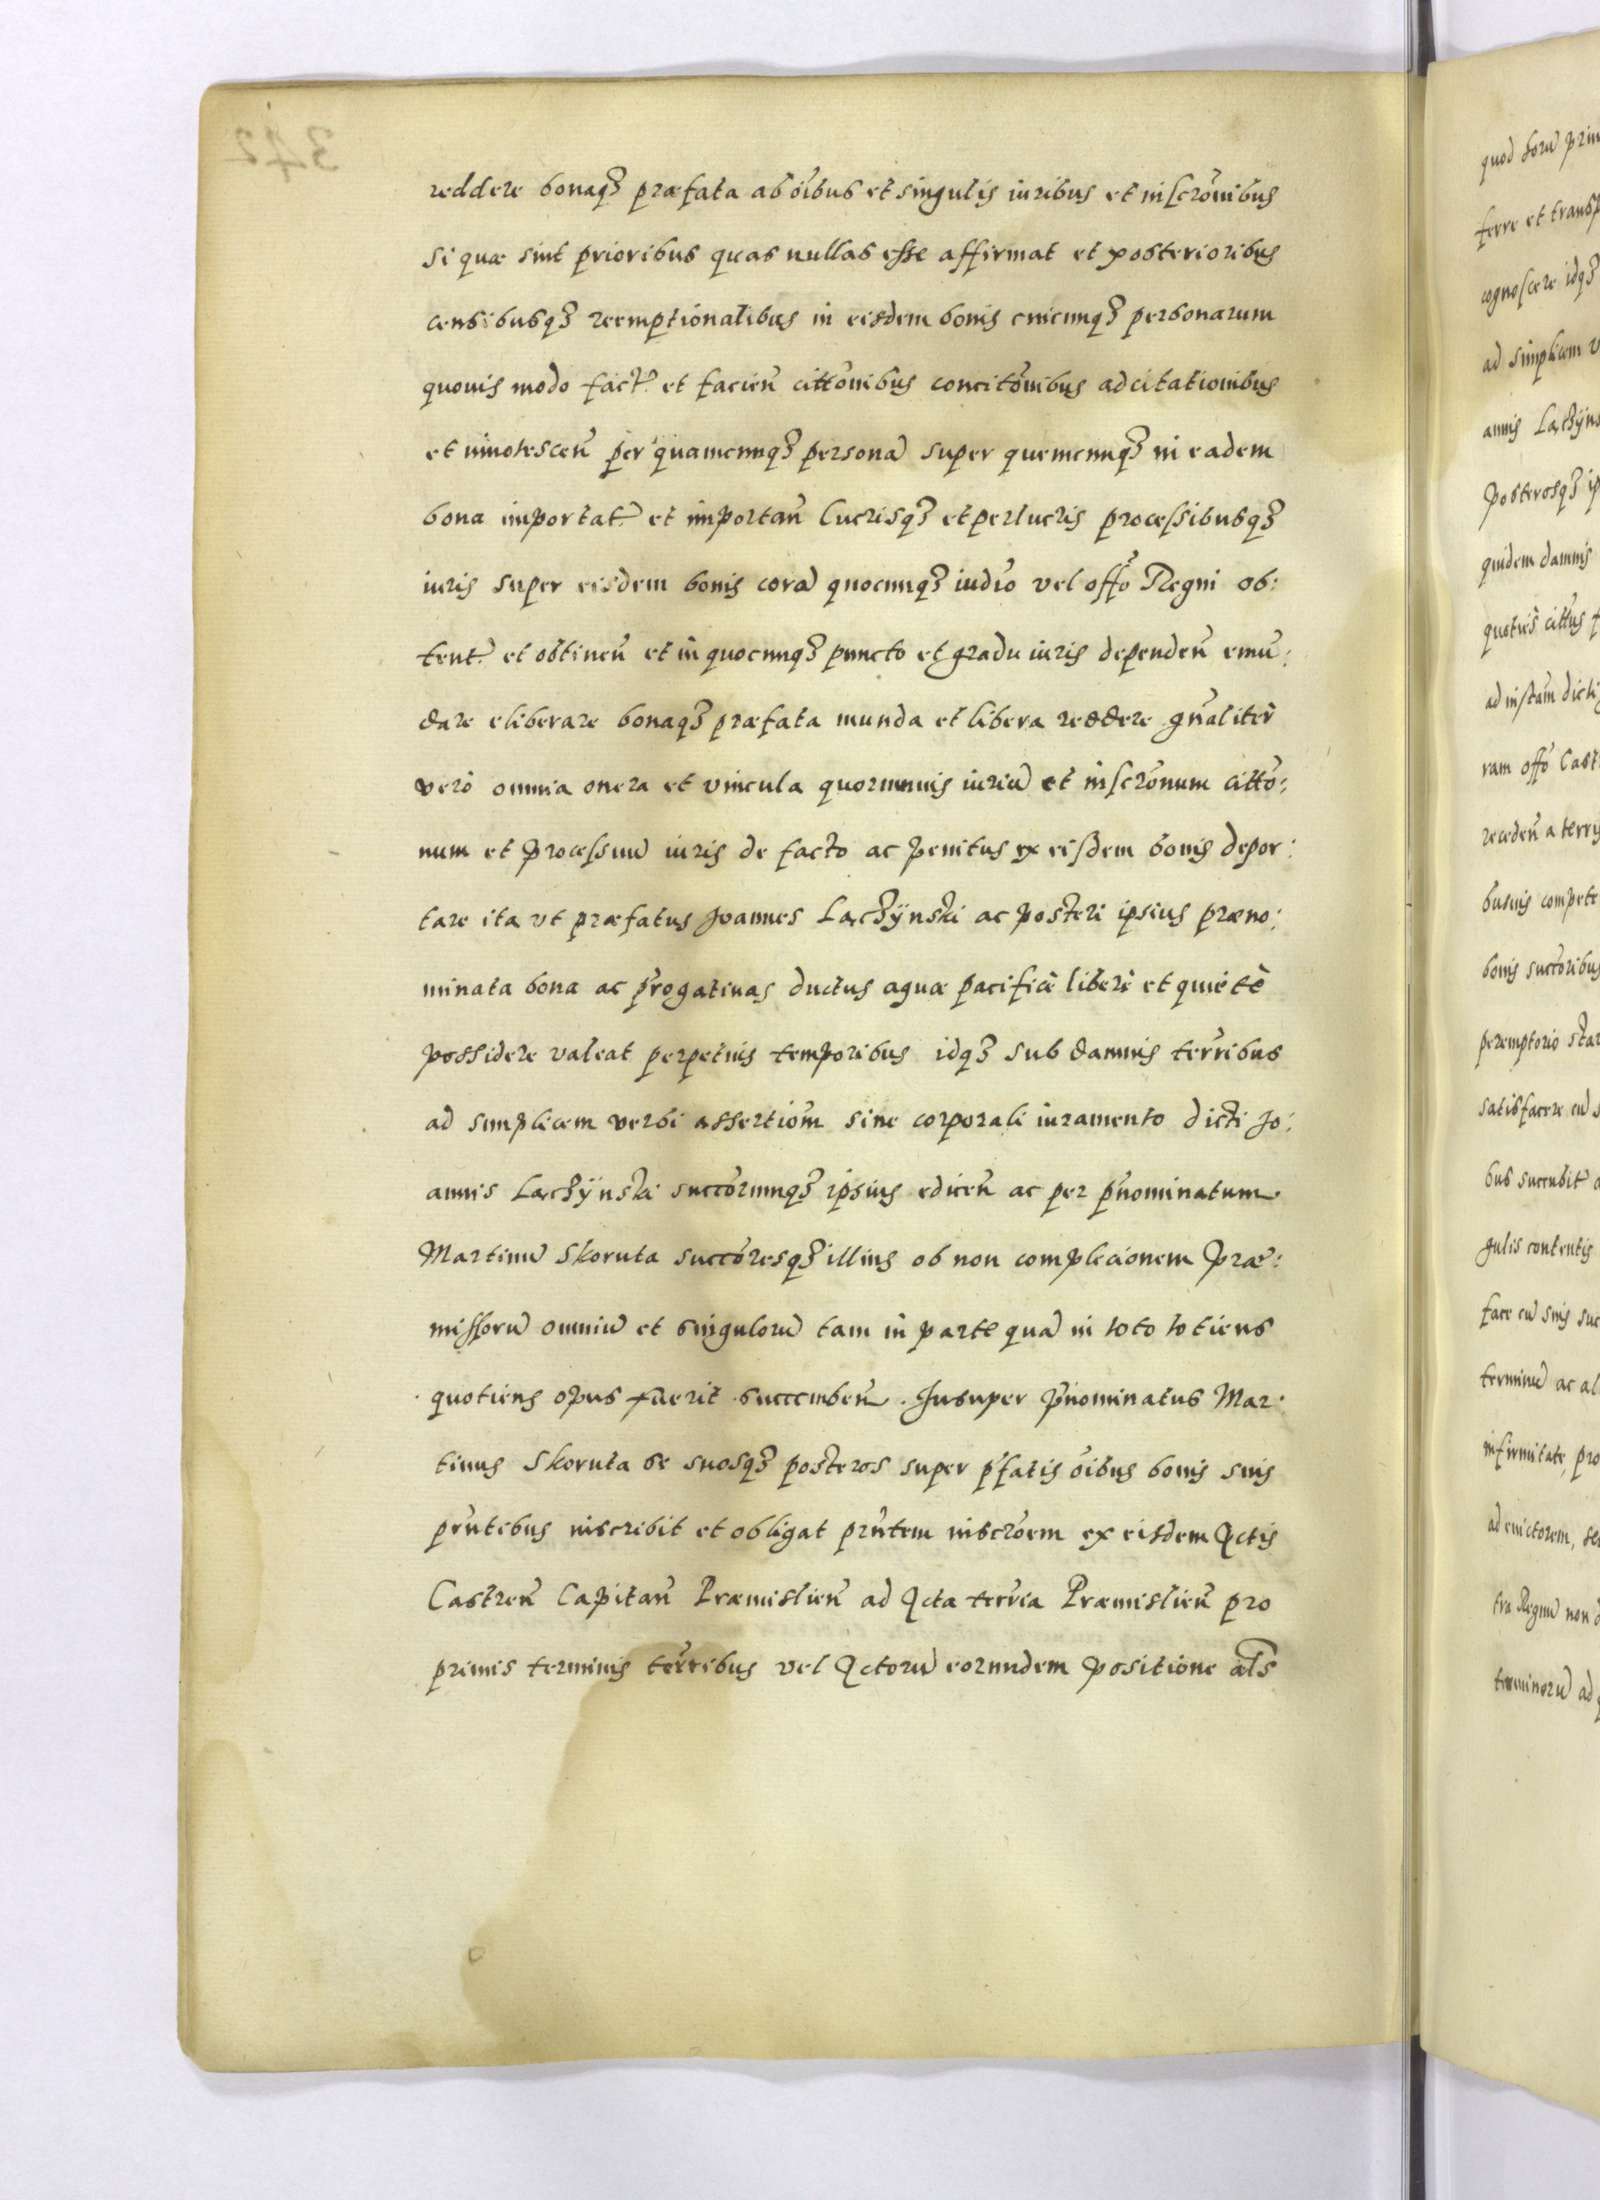 reddere bonaq3 præfata ab õibus et singulis iuribus et inscrõnibus
si quæ sint prioribus quas nullas esse affirmat et posterioribus
censibusq3 reemptionalibus in eisdem bonis cuicunq3 personarum
quouis modo fact. et facien̄ cittõnibus concitõnibus adcitationibus
et innotescen̄ per quamcunq3 personā super quemcunq3 in eadem
bona importat. et importan̄ lucrisq3 et perlucris processibusq3
iuris super eisdem bonis corā quocunq3 iudīo vel offō Regni ob:
tent. et obtinen̄ et in quocunq3 puncto et gradu iuris dependen̄ emū:
dare eliberare bonaq3 præfata munda et libera reddere gn̄aliter
verò omnia onera et vincula quorumuis iuriū et inscrōnum cittō:
num et processuū iuris de facto ac penitus ex eisdem bonis depor:
tare ita vt præfatus Joannes Lachÿnski ac posteri ipsius præno:
minata bona ac p̄rogatiuas ductus aquæ pacificè liberè et quietè
possidere valeat perpetuis temporibus idq3 sub damnis terr̄ibus
ad simplicem verbi assertiōm sine corporali iuramento dicti Jo:
annis Lachÿnski succōrumq3 ipsius edicen̄ ac per p̄nominatum
Martinū Skoruta succōresq3 illius ob non complecionem Præ:
missorū omniū et singulorū tam in parte quā in toto totiens
quotiens opus fuerit succumben̄. Insuper p̄nominatus Mar:
tinus Skoruta se suosq3 posteros super p̄fatis õibus bonis suis
prn̄tibus inscribit et obligat prn̄tem inscrōem ex eisdem Actis
Castren̄ Capitan̄ Præmislien̄ ad Acta terr̄ia Præmislien̄ pro
primis terminis terr̄ibus vel Actorū eorundem positione als̄
quod
ferre et
cognoscere idq3
ad simplicem
annis Lachÿns
Posterosq3
quidem damnis
quoties cittūs
ad instām
ram offō Cast
receden̄ a
busuis
bonis succōribus
peremptorio
satisfacere cū
bus succubit
gulis contentis
face cū suis suc
terminū ac al
infirmitate, pro
ad euictorem,
tra Regnū non
terminorū ad
342